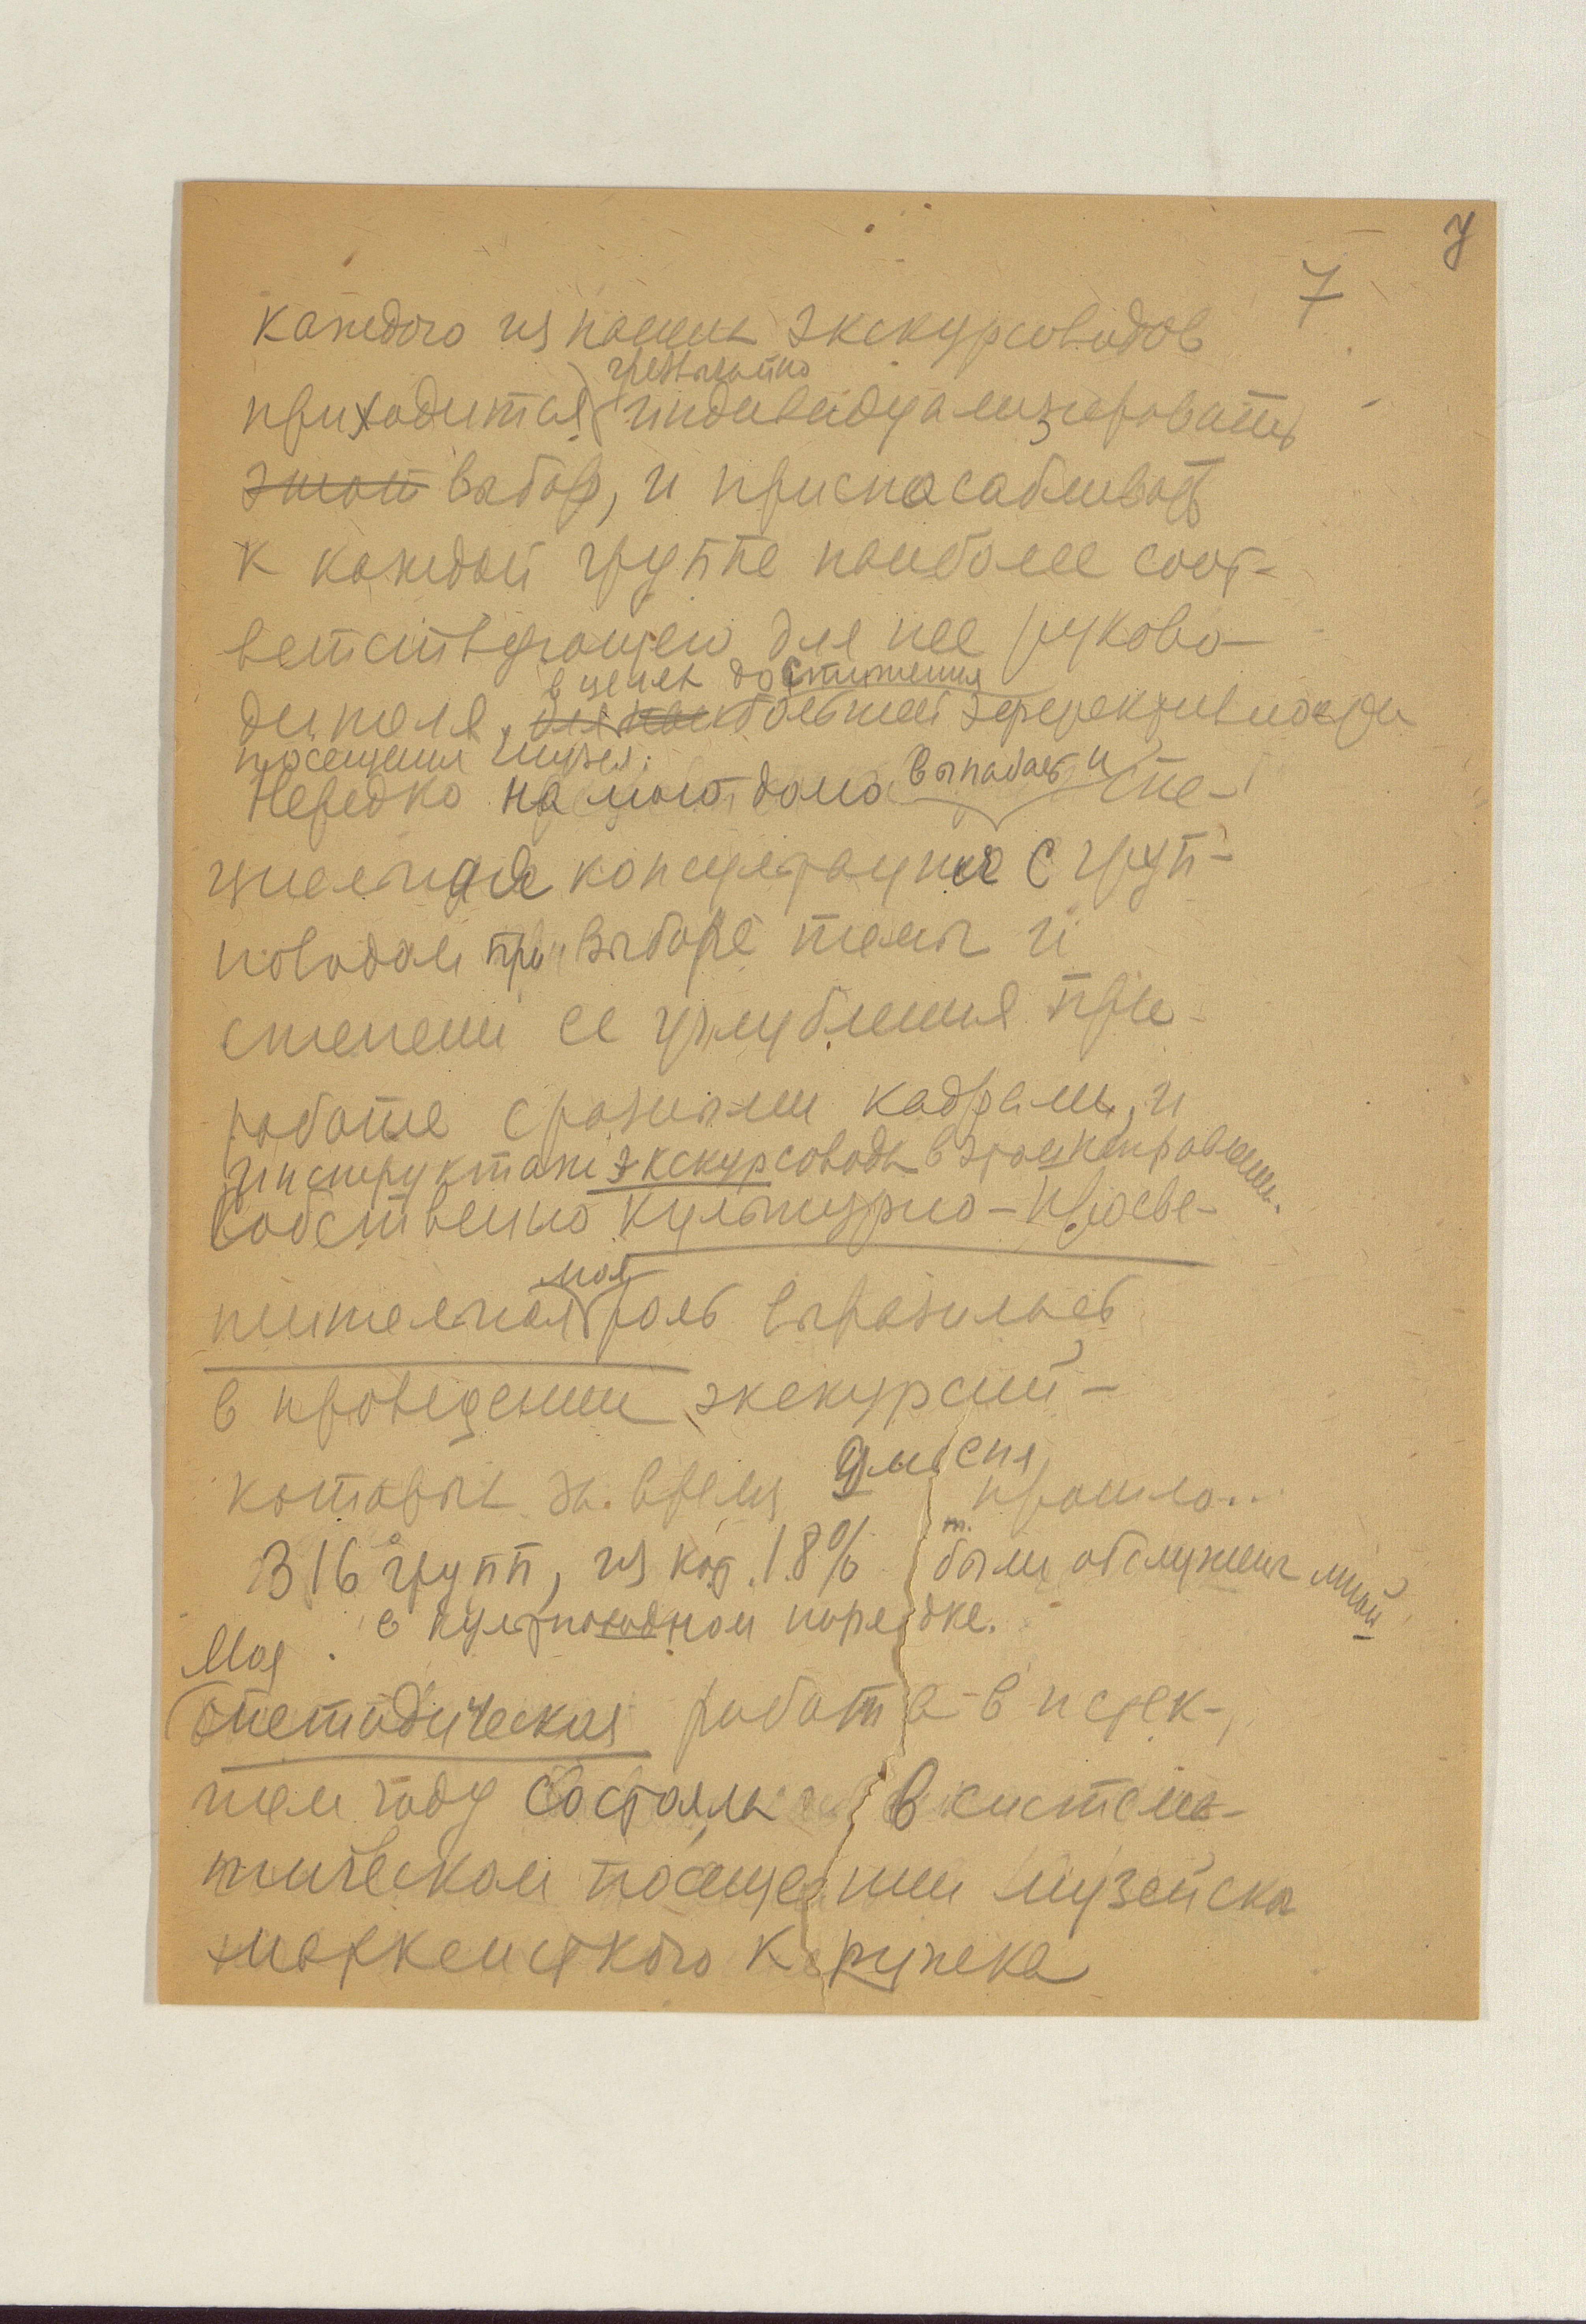 7
7
каждого из наших экскурсоводов
чрезвычайно
приходится индивидуализировать
этот выбор, и приспосабливать
к каждой группе наиболее соот-
ветствующего для нее руково-
в целях достижения
дителя, большей эффективности
посещения музея.
Нередко на мою долю выпадает и спе-
циальная консультация с груп-
поводом при выборе темы и
степени ее углубления при
работе с разными кадрами, и
инструктаж экскурсовода в этом направлении.
Собственно культурно-просве-
моя
тительная роль выразилась
в проведении экскурсий –
которых за время 9 месяц. прошло..
316 групп, из кот. 18% были обслужены мной
в культпоходном порядке.
Моя
методическая работа в истек-
шем году состояла в система-
тическом посещении музейского
марксистского кружка